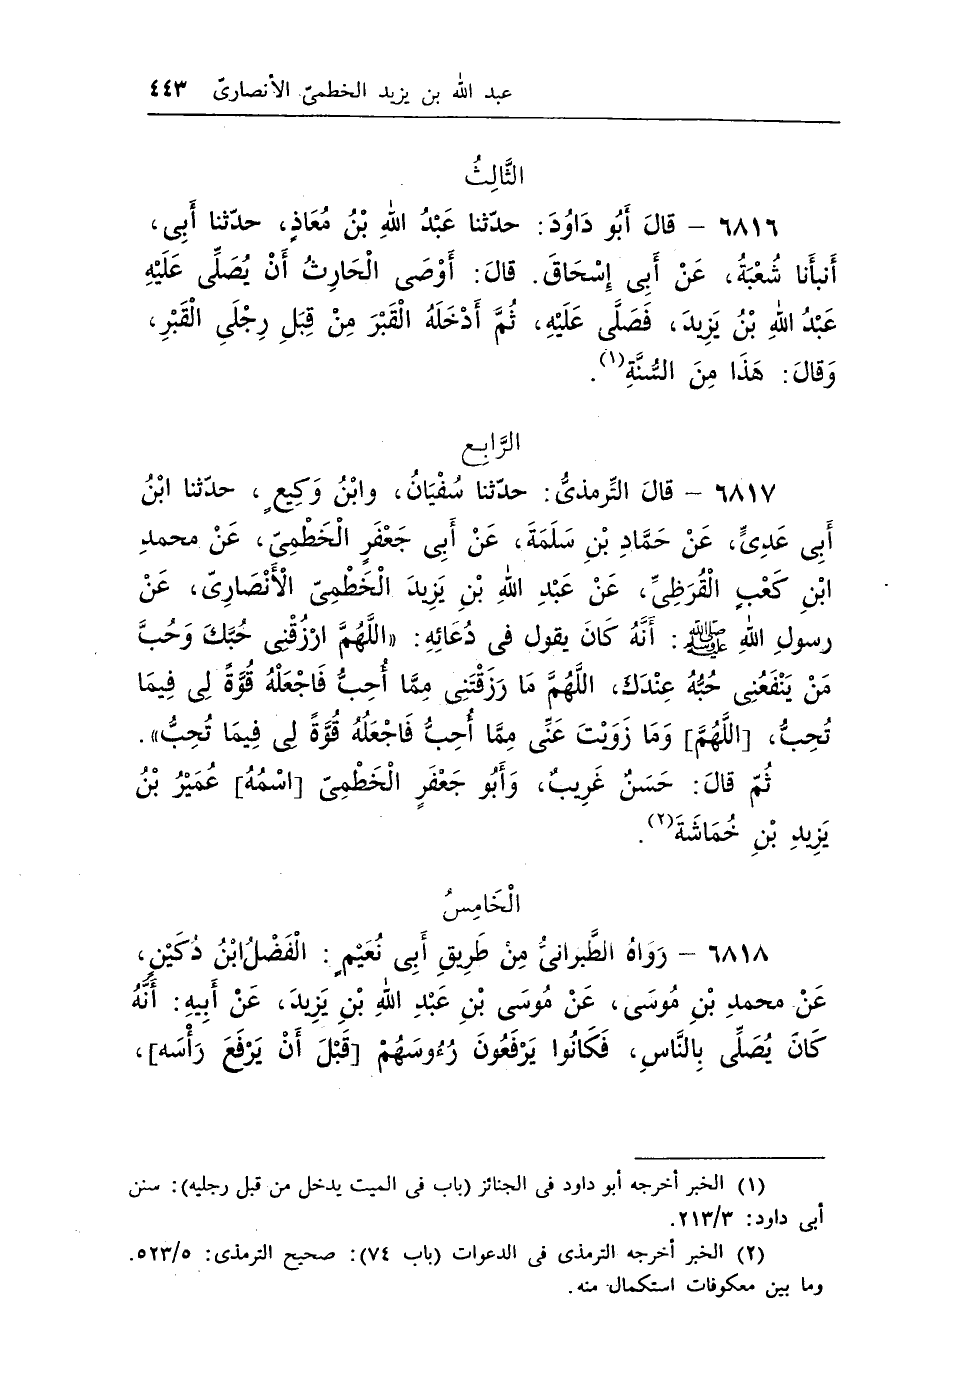 عبد الله بن يزيد الخطمىّ الأنصارىّ ٤٤٣
الثَّالِثُ
٦٨١٦ – قالَ أَبُو دَاوُدَ: حدّثنا عَبْدُ اللهِ بْنُ مُعَاذٍ، حدّثنا أَبِى،
أنبأَنا شُعْبَةُ، عَنْ أَبِى إِسْحَاقَ. قالَ: أَوْصَى الْحَارِثُ أَنْ يُصَلِّى عَلَيْهِ
عَبْدُ اللهِ بْنُ يَزِيدَ، فَصَلَّى عَلَيْهِ، ثُمَّ أَدْخَلَهُ الْقَبْرَ مِنْ قِبَلِ رِجْلَىِ الْقَبْرِ،
وَقالَ: هَذَا مِنَ السُّنَّةِ(١).
الرَّابِع
٦٨١٧ – قالَ التِّرمذىُّ: حدّثنا سُفْيَانُ، وابْنُ وَكِيعٍ، حدّثنا ابْنُ
أَبِى عَدِىٍّ، عَنْ حَمَّادِ بْنِ سَلَمَةَ، عَنْ أَبِى جَعْفَرٍ الْخَطْمِىّ، عَنْ محمدِ
ابْنِ كَعْبٍ الْقُرَظِىِّ، عَنْ عَبْدِ اللهِ بْنِ يَزِيدَ الْخَطْمِىّ الْأَنْصَارِىّ، عَنْ
رسولِ اللهِ ﷺ: أَنَّهُ كَانَ يقول فى دُعَائِهِ: «اللَّهُمَّ ارْزُقْنِى حُبَّكَ وَحُبَّ
مَنْ يَنْفَعُنِى حُبُّهُ عِنْدَكَ، اللَّهُمَّ مَا رَزَقْتَنِى مِمَّا أُحِبُّ فَاجْعَلْهُ قُوَّةً لِى فِيمَا
تُحِبُّ، [اللَّهُمَّ] وَمَا زَوَيْتَ عَنِّى مِمَّا أُحِبُّ فَاجْعَلْهُ قُوَّةً لِى فِيمَا تُحِبُّ».
ثُمّ قالَ: حَسَنٌ غَرِيبٌ، وَأَبُو جَعْفَرٍ الْخَطْمِىّ [اسْمُهُ] عُمَيْرُ بْنُ
يَزِيدِ بْنِ خُمَاشَةَ(٢).
الْخَامِسُ
٦٨١٨ – رَوَاهُ الطَّبرانىُّ مِنْ طَرِيقِ أَبِى نُعَيْمٍ: الْفَضْلُ ابْنُ دُكَيْنٍ،
عَنْ محمدِ بْنِ مُوسَى، عَنْ مُوسَى بْنِ عَبْدِ اللهِ بْنِ يَزِيدَ، عَنْ أَبِيهِ: أَنَّهُ
كَانَ يُصَلِّى بِالنَّاسِ، فَكَانُوا يَرْفَعُونَ رُءُوسَهُمْ [قَبْلَ أَنْ يَرْفَعَ رَأْسَه]،
(١) الخبر أخرجه أبو داود فى الجنائز (باب فى الميت يدخل من قبل رجليه): سنن
أبى داود: ٢١٣/٣.
(٢) الخبر أخرجه الترمذى فى الدعوات (باب ٧٤): صحيح الترمذى: ٥٢٣/٥.
وما بين معكوفات استكمال منه.